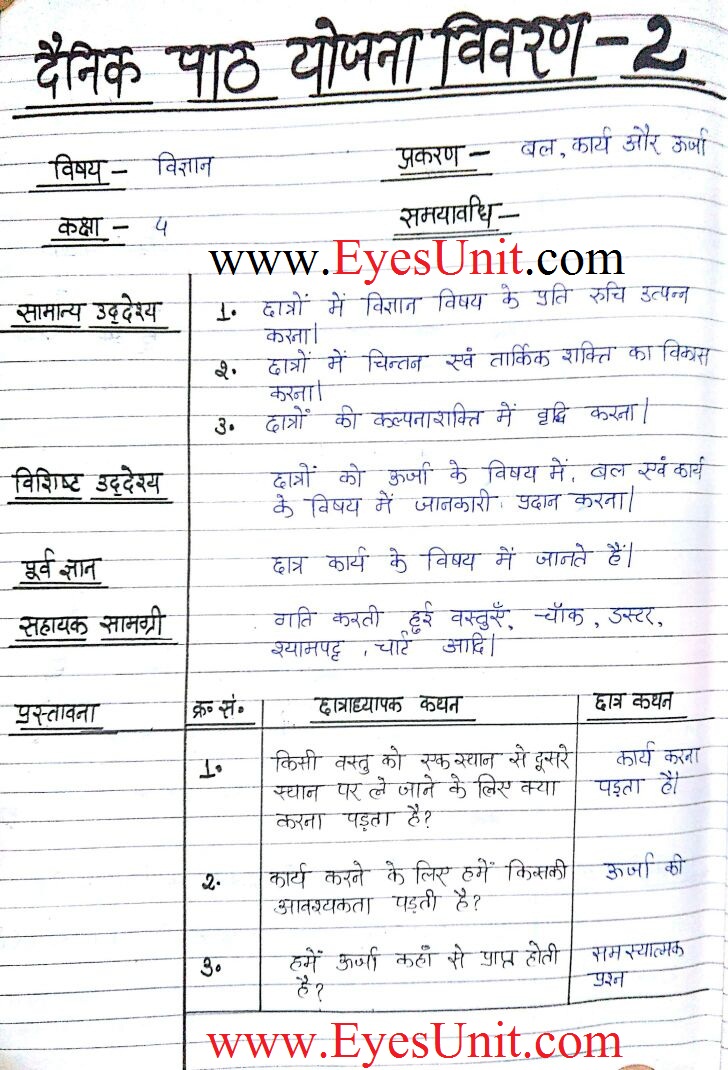 दैनिक पाठ योजना विवरण - 2
विषय - विज्ञान
प्रकरण - बल, कार्य और ऊर्जा
कक्षा - 5
समयावधि -
www.EyesUnit.com
सामान्य उद्देश्य
1. छात्रों में विज्ञान विषय के प्रति रुचि उत्पन्न
करना।
2. छात्रों में चिन्तन एवं तार्किक शक्ति का विकास
करना।
3. छात्रों की कल्पनाशक्ति में वृद्धि करना।
विशिष्ट उद्देश्य
छात्रों को ऊर्जा के विषय में, बल एवं कार्य
के विषय में जानकारी प्रदान करना।
पूर्व ज्ञान
छात्र कार्य के विषय में जानते हैं।
सहायक सामग्री
गति करती हुई वस्तुएँ, चॉक, डस्टर,
श्यामपट्ट, चार्ट आदि।
प्रस्तावना
क्र० सं०
छात्राध्यापक कथन
छात्र कथन
1.
किसी वस्तु को एक स्थान से दूसरे
स्थान पर ले जाने के लिए क्या
करना पड़ता है?
कार्य करना
पड़ता है।
2.
कार्य करने के लिए हमें किसकी
आवश्यकता पड़ती है?
ऊर्जा की
3.
हमें ऊर्जा कहाँ से प्राप्त होती
है?
समस्यात्मक
प्रश्न
www.EyesUnit.com